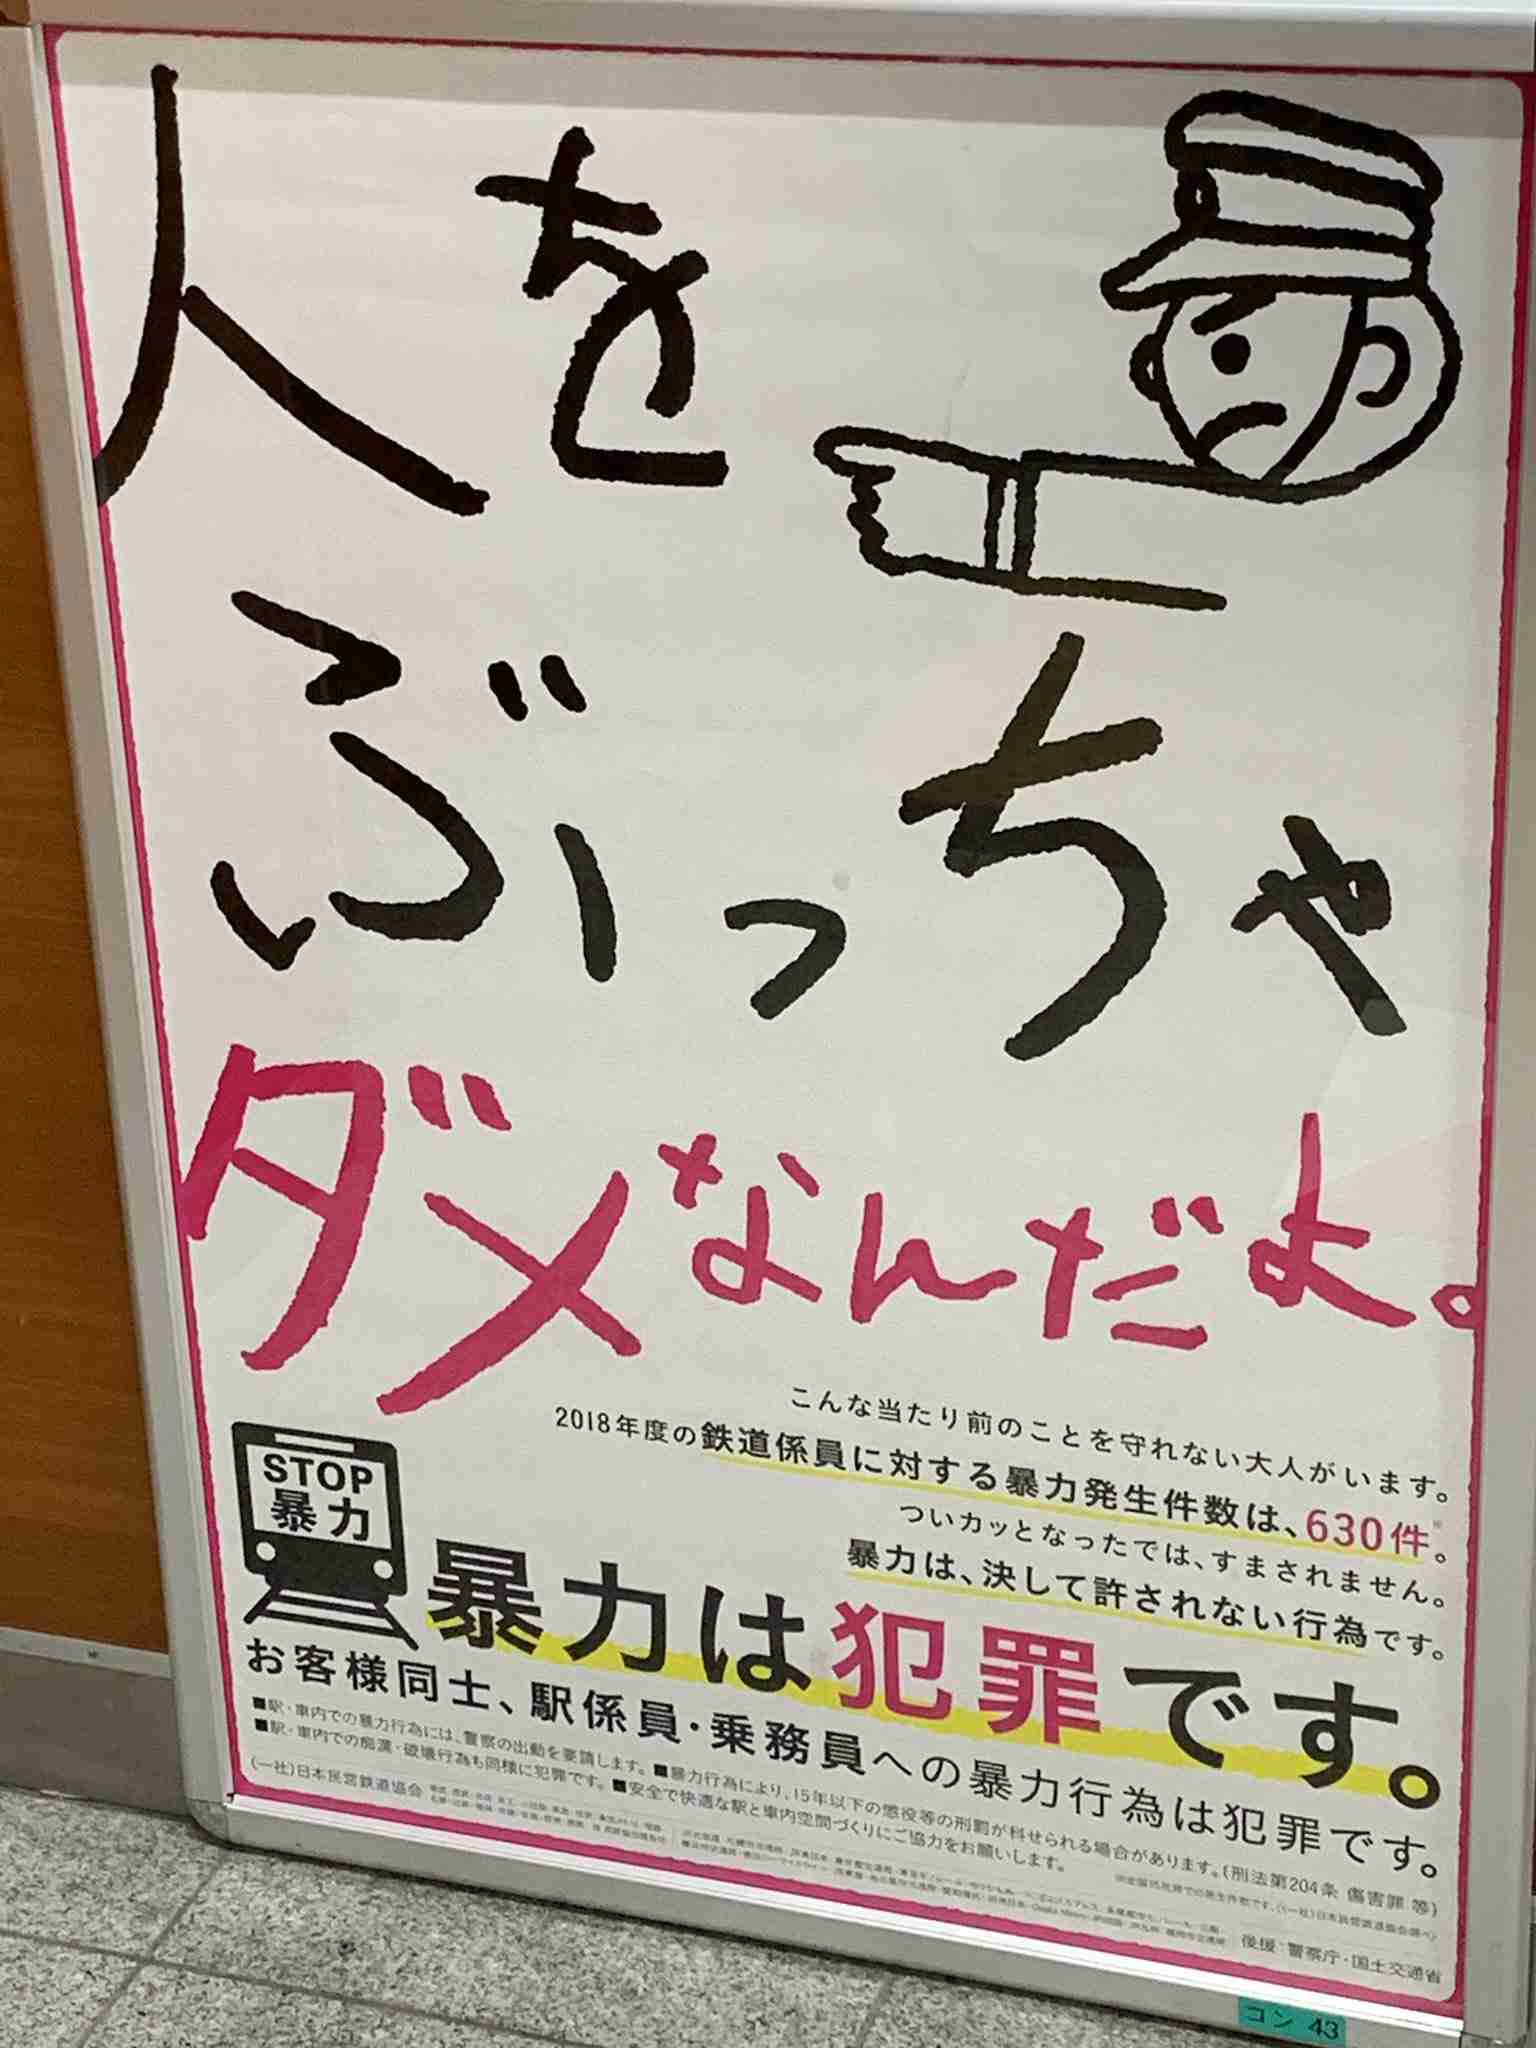 人を
ぶっちゃ
ダメなんだよ。
こんな当たり前のことを守れない大人がいます。
2018年度の鉄道係員に対する暴力発生件数は、630件※。
ついカッとなったでは、すまされません。
暴力は、決して許されない行為です。
STOP
暴力
暴力は犯罪です。
お客様同士、駅係員・乗務員への暴力行為は犯罪です。
■駅・車内での暴力行為には、警察の出動を要請します。■暴力行為により、15年以下の懲役等の刑罰が科せられる場合があります。(刑法第204条 傷害罪 等)
■駅・車内での痴漢・破壊行為も同様に犯罪です。■安全で快適な駅と車内空間づくりにご協力をお願いします。
(一社)日本民営鉄道協会
後援:警察庁・国土交通省
コン 43